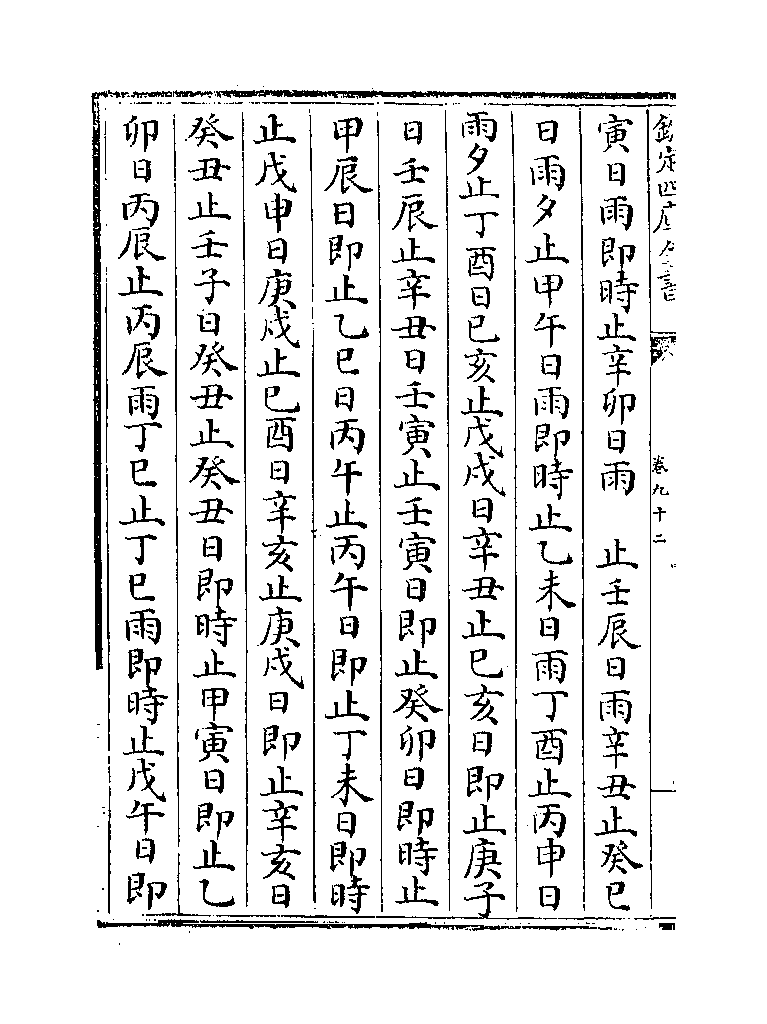 欽定四庫全書
卷九十二
寅日雨即時止辛卯日雨　止壬辰日雨辛丑止癸巳
日雨夕止甲午日雨即時止乙未日雨丁酉止丙申日
雨夕止丁酉日己亥止戊戌日辛丑止己亥日即止庚子
日壬辰止辛丑日壬寅止壬寅日即止癸卯日即時止
甲辰日即止乙巳日丙午止丙午日即止丁未日即時
止戊申日庚戌止己酉日辛亥止庚戌日即止辛亥日
癸丑止壬子日癸丑止癸丑日即時止甲寅日即止乙
卯日丙辰止丙辰雨丁巳止丁巳雨即時止戊午日即